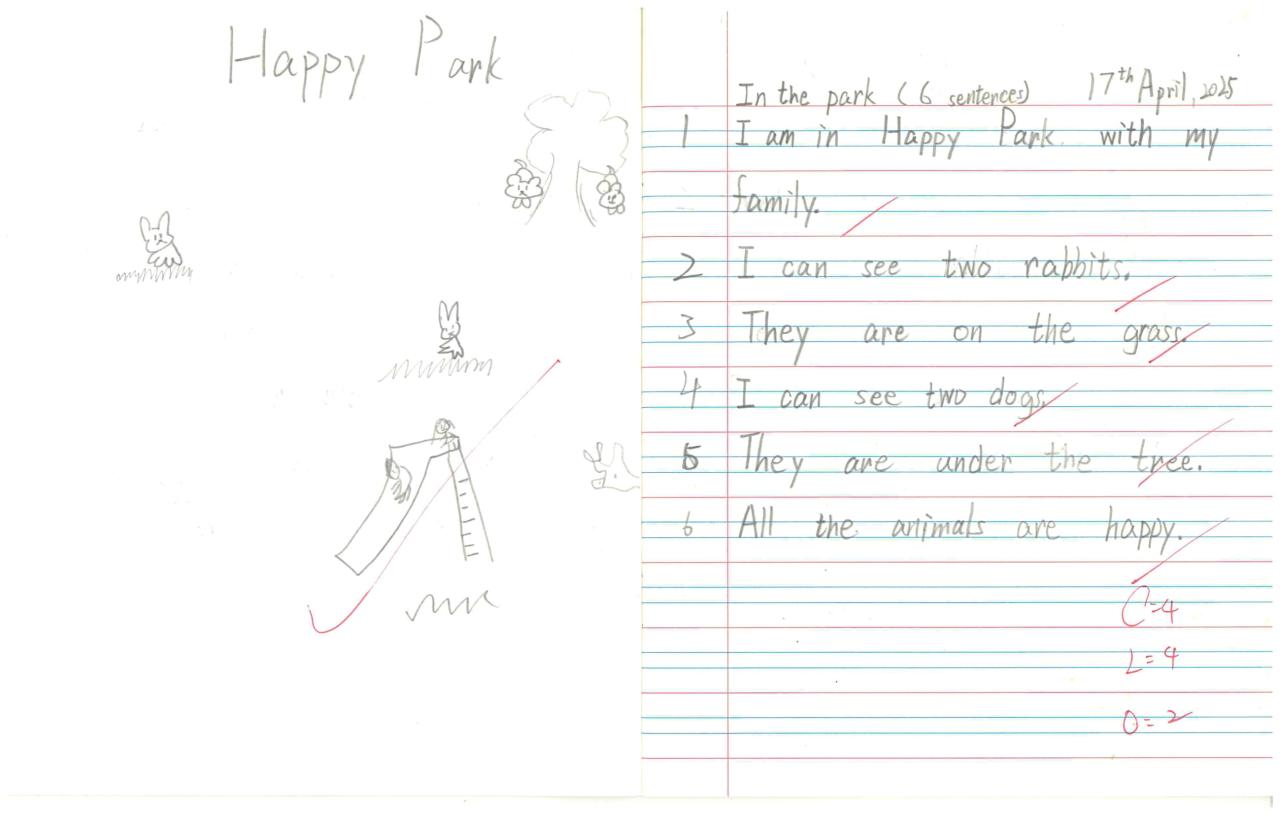 Happy Park
In the park (6 sentences) 17th April, 2025
1 I am in Happy Park with my
family.
2 I can see two rabbits.
3 They are on the grass.
4 I can see two dogs.
5 They are under the tree.
6 All the animals are happy.
C=4
L=4
O=2